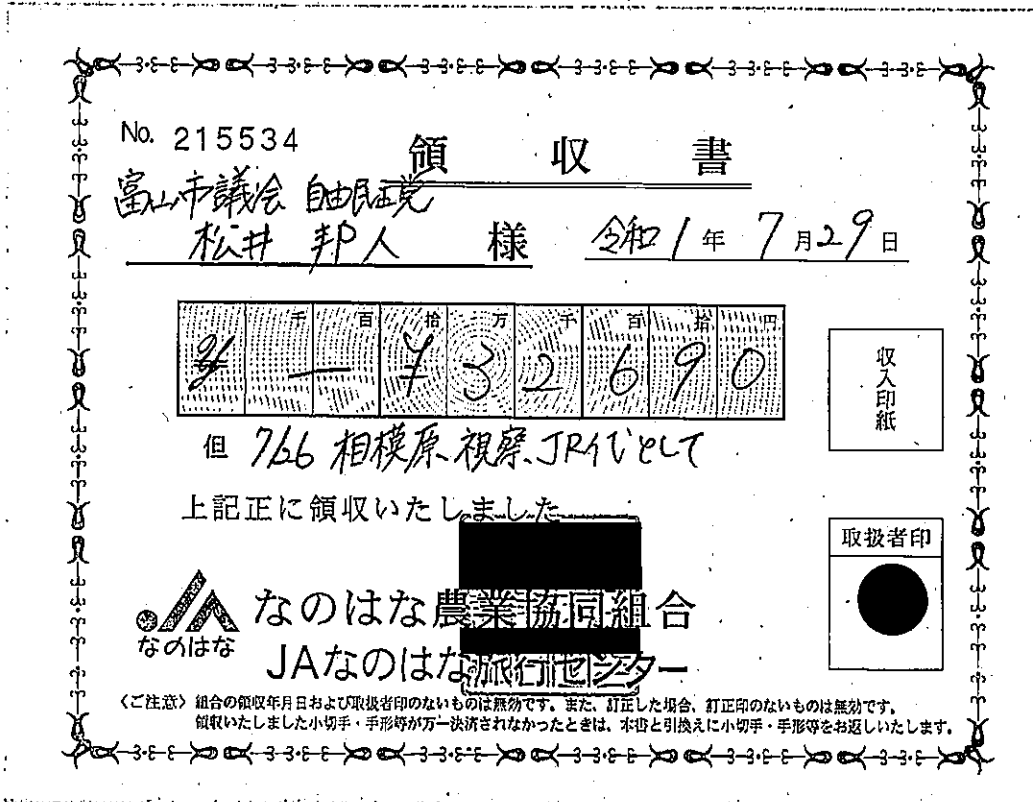 No. 215534
領収書
富山市議会 自由民主党
松井 邦人 様
令和1年7月29日
千 百 拾 万 千 百 拾 円
¥ 3 2 6 9 0
但 7/26 相模原視察JR代として
上記正に領収いたしました
収入印紙
取扱者印
なのはな
なのはな農業協同組合
JAなのはな旅行センター
〈ご注意〉 組合の領収年月日および取扱者印のないものは無効です。また、訂正した場合、訂正印のないものは無効です。
領収いたしました小切手・手形等が万一決済されなかったときは、本書と引換えに小切手・手形等をお返しいたします。